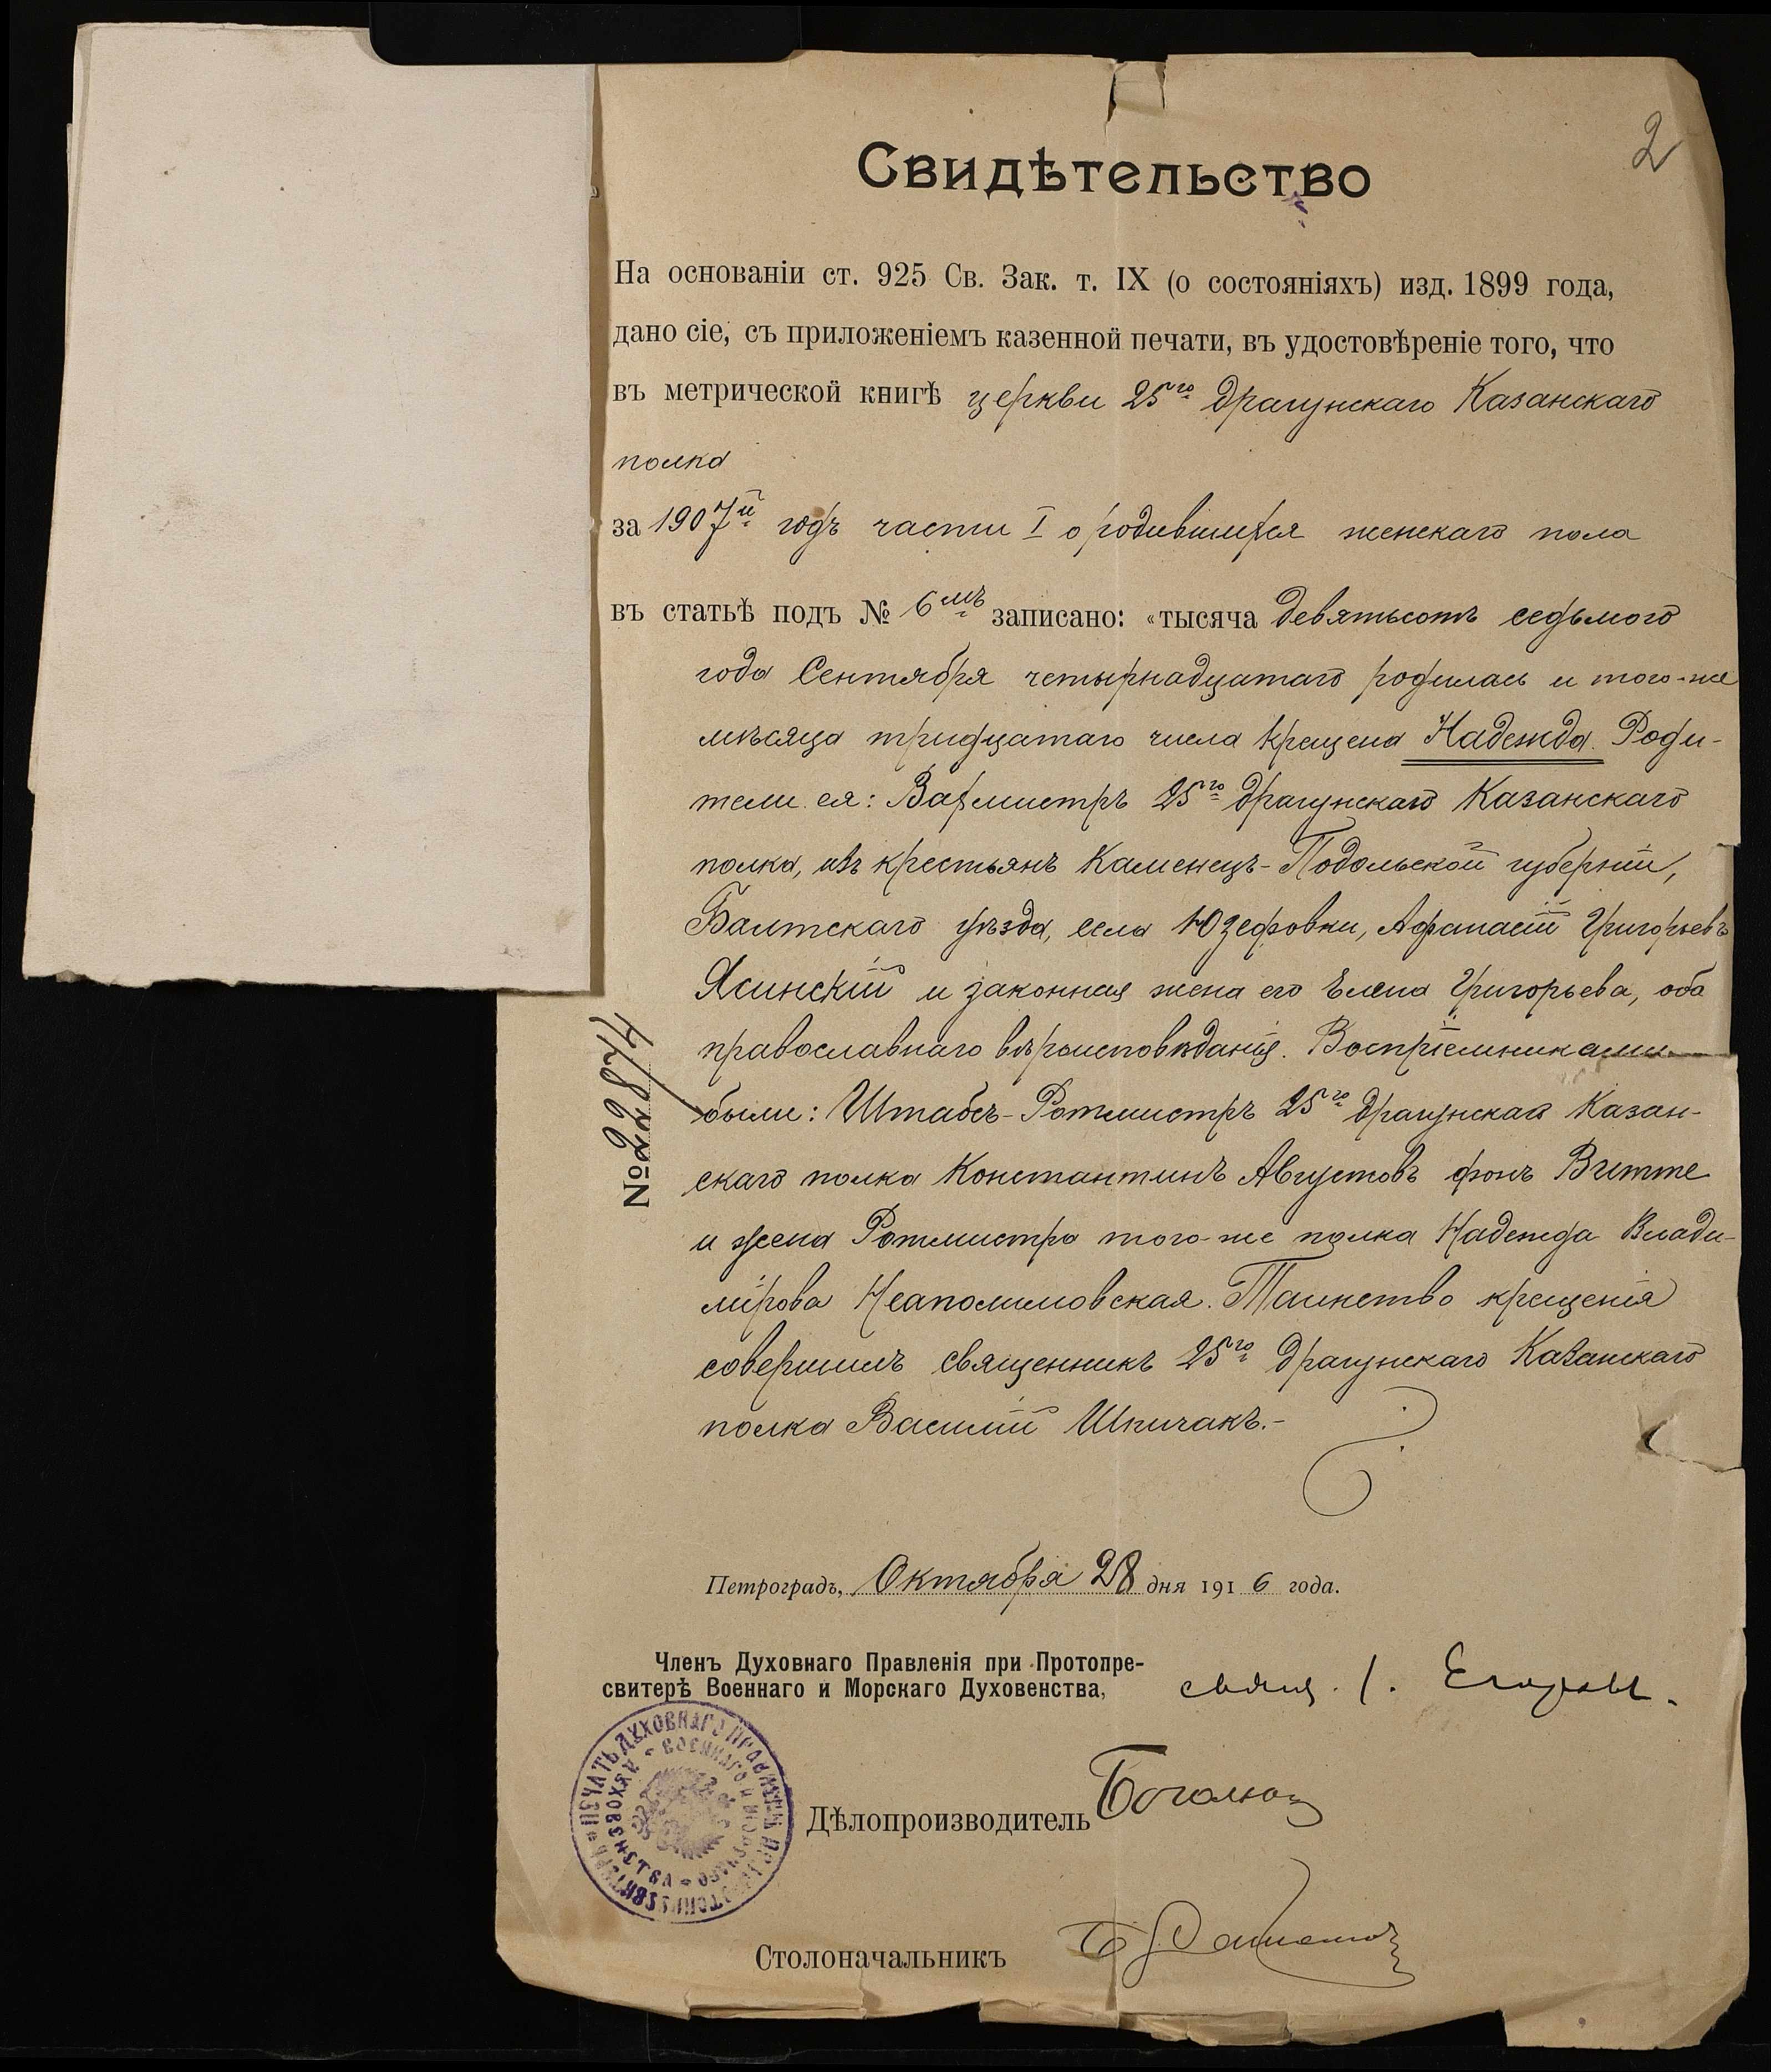 2
Свидѣтельство
На основаніи ст. 925 Св. Зак. т. IX (о состояніяхъ) изд. 1899 года,
дано сіе, съ приложеніемъ казенной печати, въ удостовѣреніе того, что
въ метрической книгѣ церкви 25го Драгунскаго Казанскаго
полка
за 1907й годъ части I о родившихся женскаго пола
въ статьѣ подъ № 6мъ записано: «тысяча девятьсотъ седьмого
года Сентября четырнадцатаго родилась и того-же
мѣсяца тридцатаго числа крещена Надежда. Роди-
тели ея: Вахмистръ 25го Драгунскаго Казанскаго
полка, изъ крестьянъ Каменецъ-Подольской губерніи,
Балтскаго уѣзда, села Юзефовки, Афанасій Григорьевъ
Ясинскій и законная жена его Елена Григорьева, оба
православнаго вѣроисповѣданія. Воспріемниками
были: Штабсъ-Ротмистръ 25го Драгунскаго Казан-
скаго полка Константинъ Августовъ фонъ Витте
и жена Ротмистра того-же полка Надежда Влади-
мірова Неаполимовская. Таинство крещенія
совершилъ священникъ 25го Драгунскаго Казанскаго
полка Василій Шпичакъ.-
№ 22874
Петроградъ, Октября 28 дня 1916 года.
Членъ Духовнаго Правленія при Протопре-
свитерѣ Военнаго и Морскаго Духовенства, свящ. Егоровъ.
ПЕЧАТЬ ДУХОВНАГО ПРАВЛЕНІЯ ПРИ ПРОТОПРЕСВИТЕРѢ
ВОЕННАГО И МОРСКАГО ДУХОВЕНСТВА
Дѣлопроизводитель
Столоначальникъ